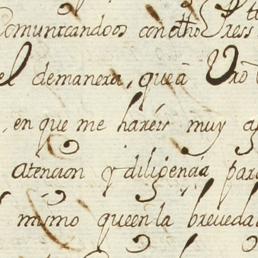 Comunicandoos con d͞ho Press
el demanera, que â Vro
, en que me hareis muy a
atencion y diligencia para
mismo queen la breveda